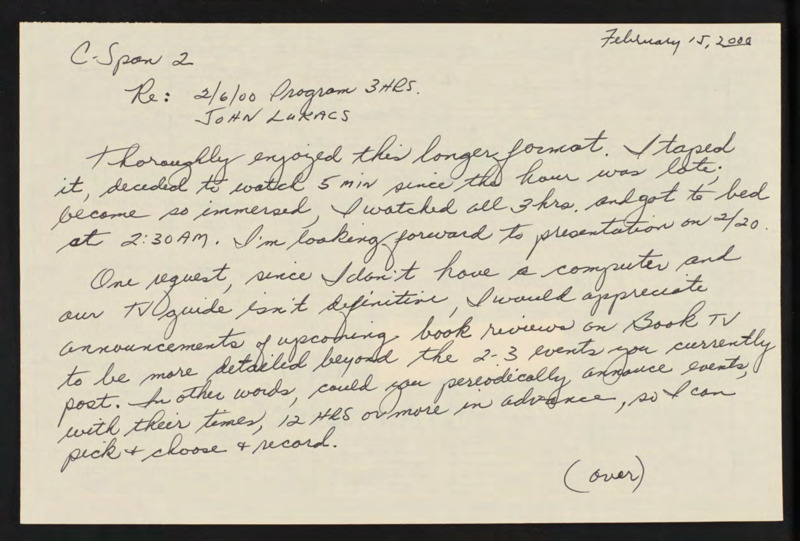 February 15, 2000
C-Span 2
Re: 2/6/00 Program 3HRS.
JOHN LUKACS
Thoroughly enjoyed this longer format. I taped
it, decided to watch 5 min since the hour was late;
become so immersed, I watched all 3 hrs. and got to bed
at 2:30 AM. I'm looking forward to presentation on 2/20.
One request, since I don't have a computer and
our TV guide isn't definitive, I would appreciate
announcements of upcoming book reviews on Book TV
to be more detailed beyond the 2-3 events you currently
post. In other words, could you periodically announce events,
with their times, 12 HRS or more in advance, so I can
pick + choose + record.
(over)